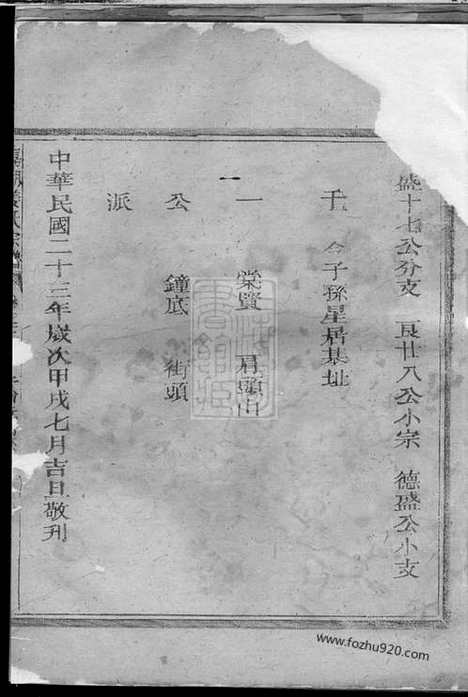 盛十七公分支 良廿八公小宗 德盛公小支
千 今子孫星居基址
一 棠賢 肩頭山
公 鐘底 街頭
派
中華民國二十三年歲次甲戌七月吉旦敬刊
www.fozhu920.com